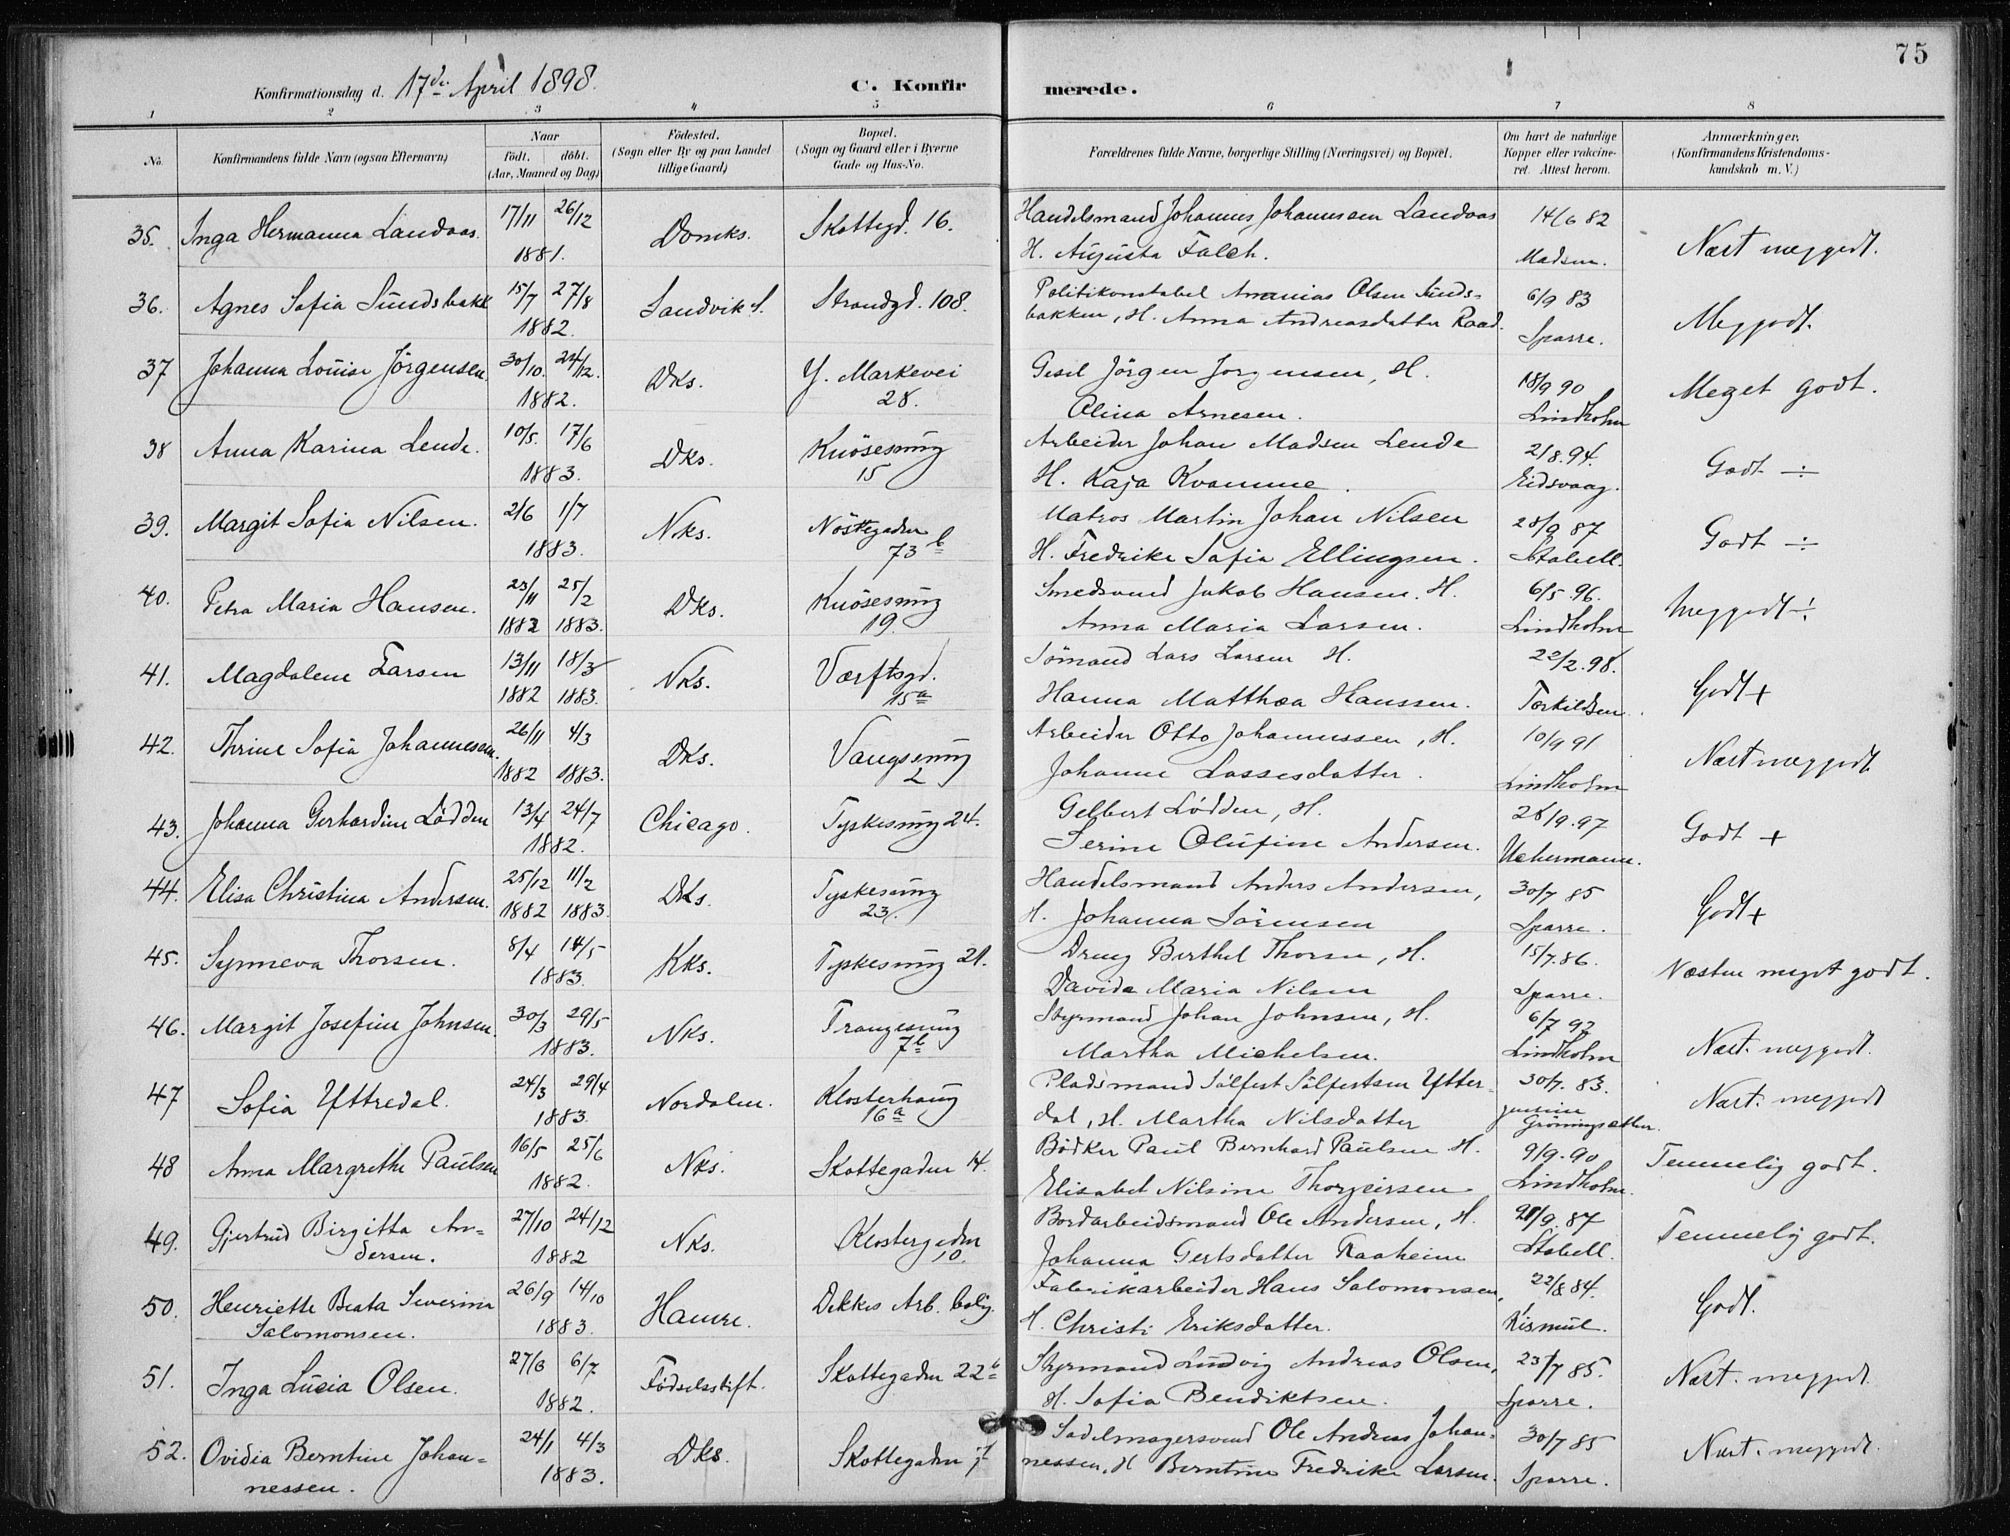 75
Konfirmationsdag d. 17de April 1898.
C. Konfirmerede.
1 2 3 4 5 6 7 8
No.
Konfirmandens fulde Navn (ogsaa Efternavn)
Naar
födt. döbt.
(Aar, Maaned og Dag)
Födested.
(Sogn eller By og paa Landet
tillige Gaard)
Bopæl.
(Sogn og Gaard eller i Byerne
Gade og Hus-No.
Forældrenes fulde Navne, borgerlige Stilling (Næringsvei) og Bopæl.
Om havt de naturlige
Kopper eller vakcine-
ret. Attest herom.
Anmærkninger.
(Konfirmandens Kristendoms-
kundskab m. V.)
35. Inga Hermanna Landaas. 17/11 26/12 Domks. Skottegd. 16. Handelsmand Johannes Johannesen Landaas 14/6 82 Næst meggodt.
1881. H. Augusta Falch. Madsen.
36. Agnes Sofia Sundsbakk 15/7 27/8 Sandvik S. Strandgd. 108. Politikonstabel Ananias Olsen Sunds- 6/9 83 Meggodt.
1882. bakken, H. Anna Andreasdatter Raad. Sparre.
37 Johanna Louise Jörgensen. 30/10. 24/12. Dks. Y. Markevei Gesel Jörgen Jorgensen, H. 18/9 90 Meget godt.
1882. 28. Olina Arnesen. Lindholm
38 Anna Karina Lende. 10/5. 17/6 Dks. Knösesmug Arbeider Johan Madsen Lende 21/8.94. Godt ÷
1883. 15 H. Kaja Kvamme. Eidsvaag.
39. Margit Sofia Nilsen. 2/6 1/7 Nks. Nöstegaden Matros Martin Johan Nilsen 28/9 87 Godt ÷
1883. 73 b H. Fredrike Sofia Ellingsen. Stabell.
40. Petra Maria Hansen. 23/11 25/2 Dks. Knösesmug Smedsvend Jakob Hansen. H. 6/5.96. Meggodt ÷
1882 1883. 19. Anna Maria Larsen. Lindholm
41. Magdalene Larsen 13/11 18/3 Nks. Værftsgd. Sömand Lars Larsen H. 22/2.98. Godt +
1882 1883. 15a Hanna Matthea Hanssen. Torkildsen.
42. Thrine Sofia Johannesen. 26/11 4/3 Dks. Vangsmug Arbeider Otto Johannessen, H. 10/9 91 Næst meggodt
1882 1883. 2 Johanne Lassesdatter. Lindholm
43. Johanna Gerhardine Lödden 13/4 24/7 Chicago. Tyskesmug 24. Gelbert Lödden, H. 28/9.97 Godt +
1882. Serine Olufine Andersen. Uchermann.
44. Elisa Christina Andersen. 25/12 11/2 Dks. Tyskesmug Handelsmand Anders Andersen, 30/7 85 Godt +
1882 1883. 23. H. Johanna Sörensen Sparre.
45. Synneva Thorsen. 8/4 14/5 Kks. Tyskesmug 21. Dreng Berthel Thorsen, H. 15/7.86. Næsten meget godt.
1883. Davida Maria Nilsen Sparre.
46. Margit Josefine Johnsen. 30/3 29/5 Nks. Trangesmug Styrmand Johan Johnsen, H. 6/7 92 Næst. meggodt.
1883. 7b Martha Michelsen. Lindholm
47 Sofia Yttredal. 24/3 29/4 Nordalen. Klosterhaug Pladsmand Sölfest Sölfestsen Ytter- 30/7. 83. Næst. meggodt
1883. 16a dal, H. Martha Nilsdatter Gröningsæther.
48 Anna Margrethe Paulsen 16/5 25/6 Nks. Skottegaden 14. Bödker Paul Bernhard Paulsen H. 9/9.90 Temmelig godt.
1882. Elisabet Nilsine Thorgeirsen Lindholm.
49. Gjertrud Birgitta An- 27/10 24/12 Nks. Klostergaden Bordarbeidsmand Ole Andersen, H. 21/9.87 Temmelig godt.
dersen. 1882 10. Johanna Gertsdatter Traaheim Stabell.
50. Henriette Beata Severina 26/9 14/10 Hamre. Dekkes Arb. bolig. Fabrikarbeider Hans Salomonsen, 22/8.84. Godt.
Salomonsen. 1883. H. Christi Eriksdatter. Rismul.
51. Inga Lucia Olsen. 27/6 6/7 Födselsstift. Skottegaden 22b Styrmand Ludvig Andreas Olsen, 23/7 85. Næst. meggodt.
1882. H. Sofia Bendiktsen. Sparre.
52. Ovidia Berntine Johan- 24/1 4/3 Dks. Skottegaden Sadelmagersvend Ole Andreas Johan- 30/7 85 Næst. meggodt.
nessen. 1883. nessen, H Berntine Fredrike Larsen. Sparre.